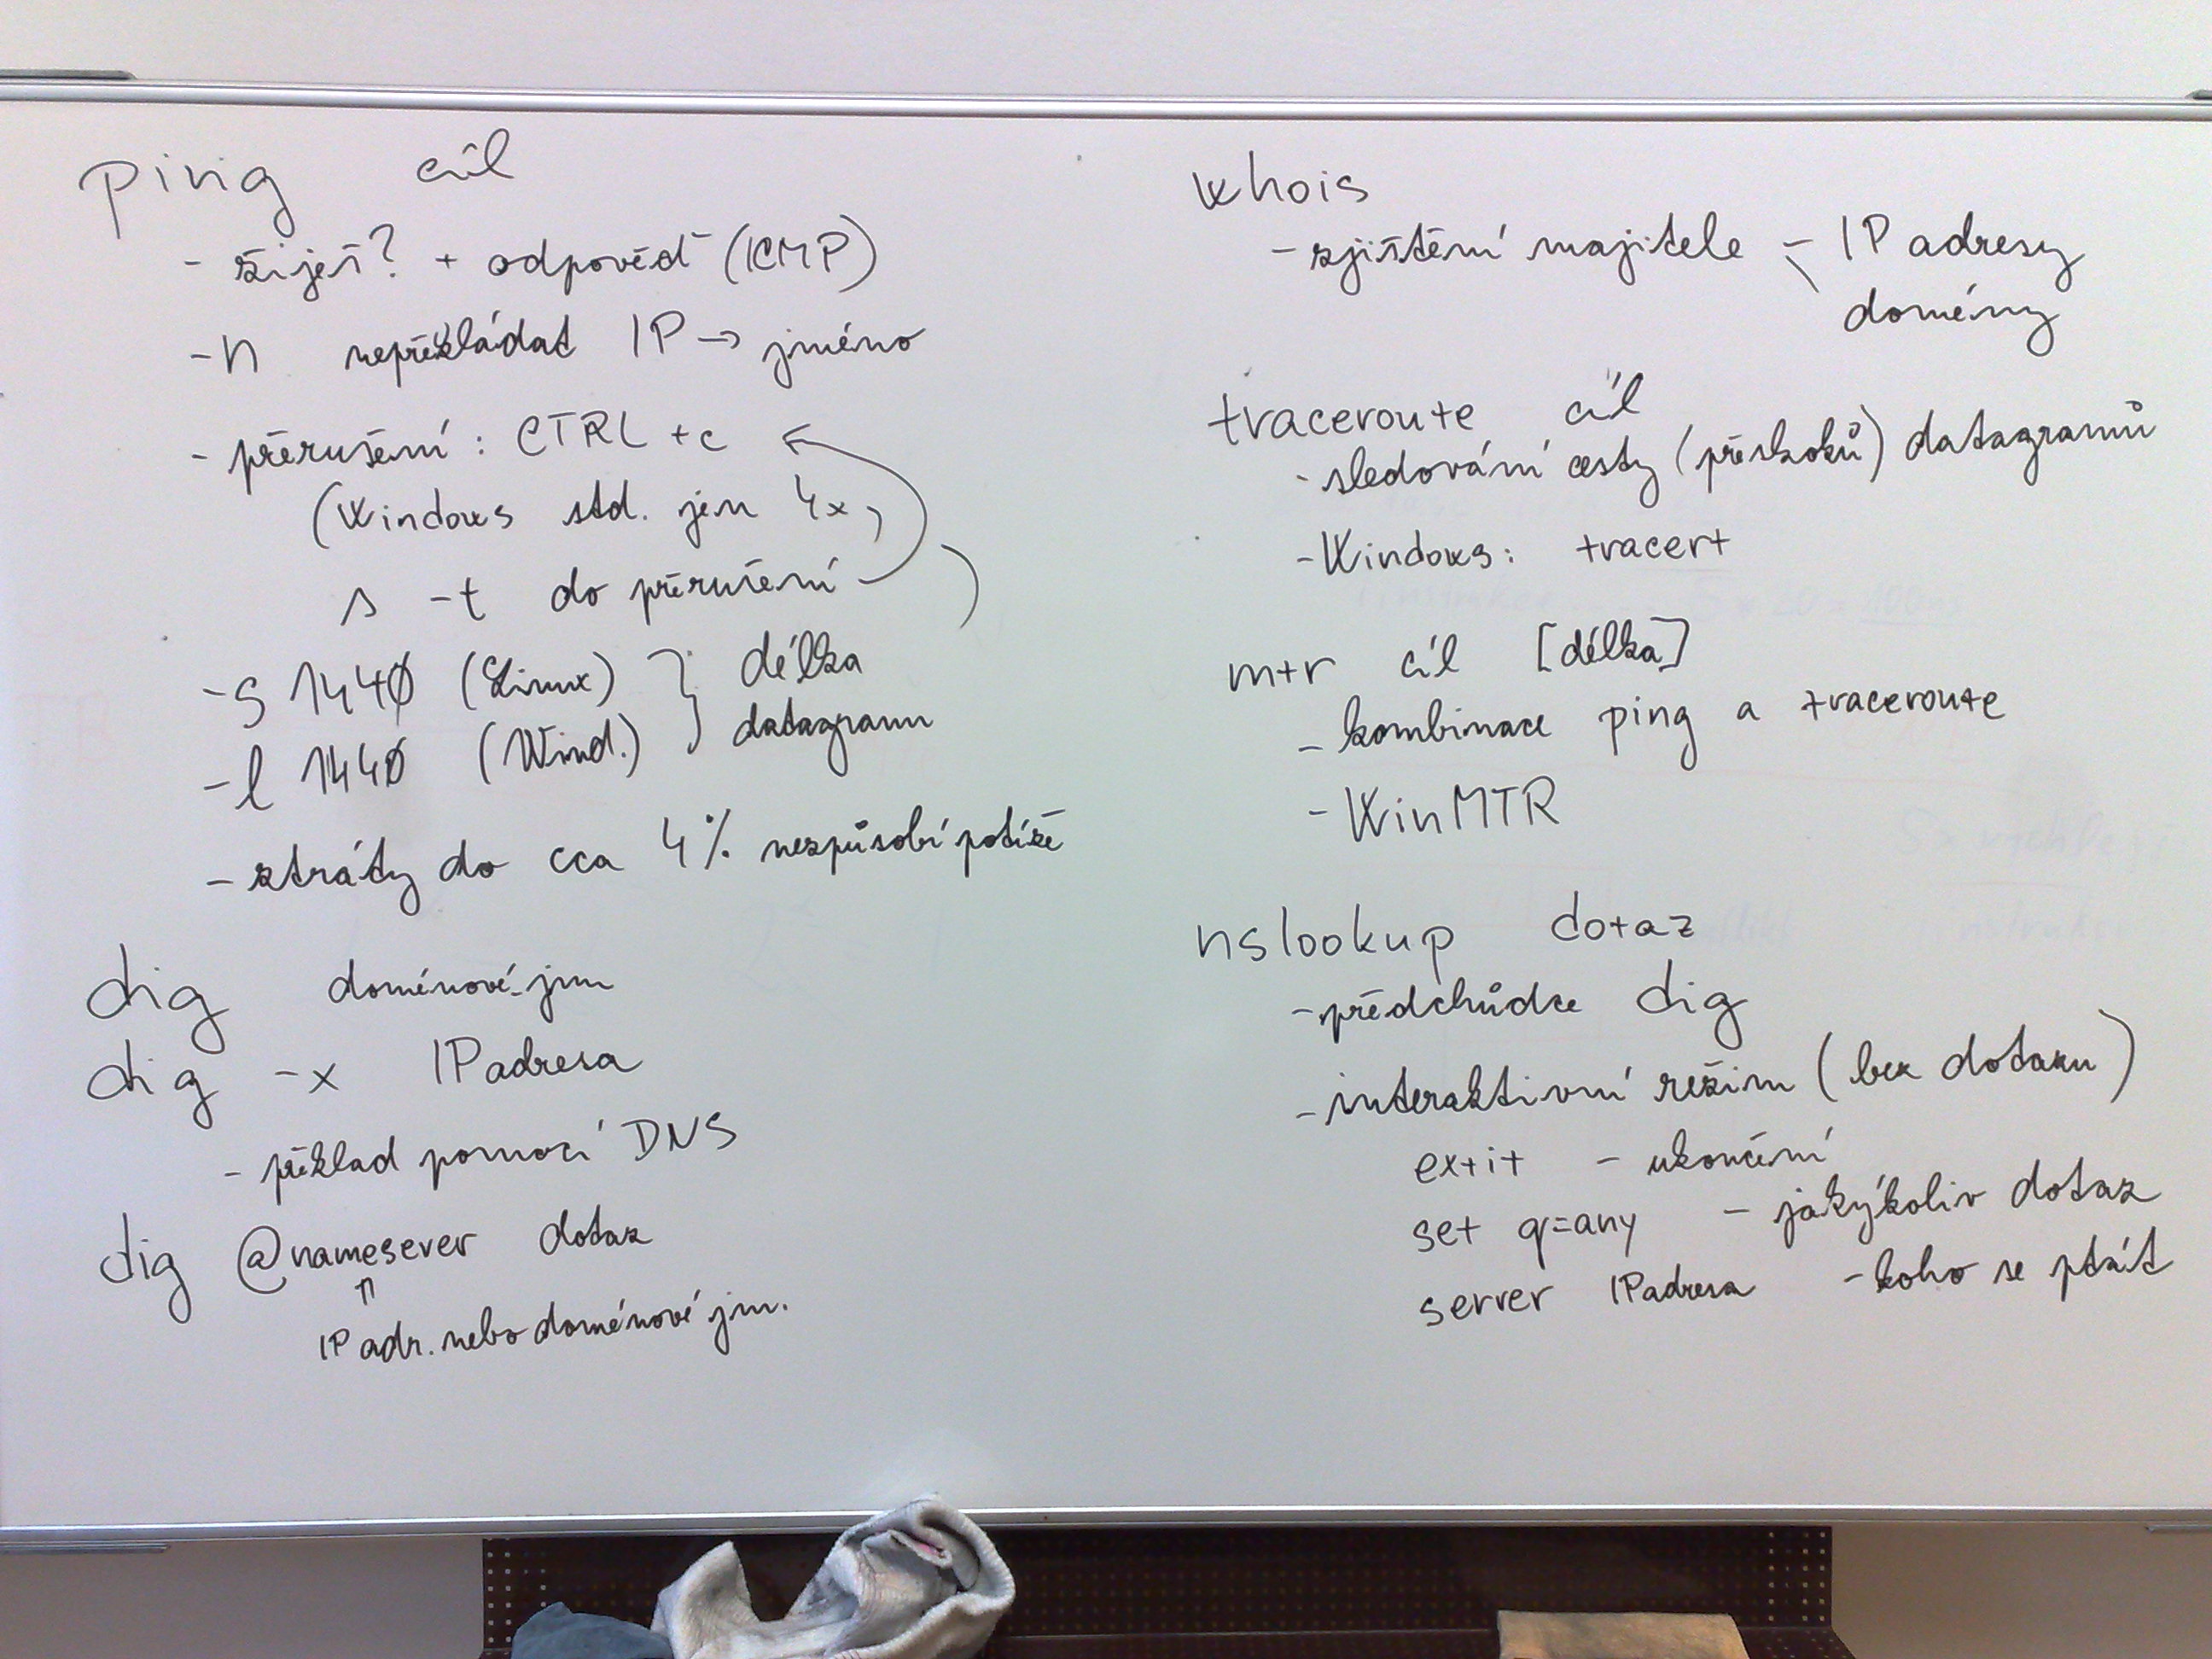 ping cíl
- žiješ? + odpověď (ICMP)
-n nepřekládat IP → jméno
- přerušení : CTRL + c
(Windows std. jen 4x,
s -t do přerušení )
-s 1440 (Linux) } délka
-l 1440 (Wind.) } datagramu
- ztráty do cca 4% nezpůsobí potíže
dig doménové jm
dig -x IPadresa
- překlad pomocí DNS
dig @namesever dotaz
↑
IP adr. nebo doménové jm.
whois
- zjištění majitele - IP adresy
\ domény
traceroute cíl
- sledování cesty (přeskoků) datagramů
- Windows: tracert
mtr cíl [délka]
- kombinace ping a traceroute
- WinMTR
nslookup dotaz
- předchůdce dig
- interaktivní režim (bez dotazu)
exit - ukončení
set q=any - jakýkoliv dotaz
server IPadresa - koho se ptát